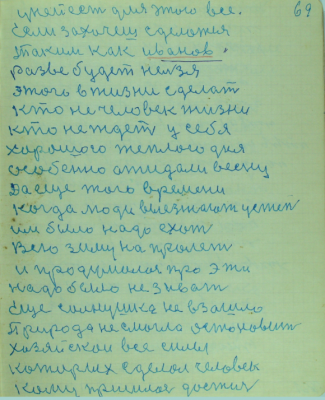 69
умеет для этого все.
Если захочеш сделатся
таким как иванов.
разве будет нелзя
этого в жизни сделат
кто не человек жизни
кто не ждет у себя
хорошого теплого дня
особенно ожидали весну
Да еще того времени
когда люди
им было надо ехат
Всю зиму на пролет
и продумался про эти
надо было не зиват
еще солнушка не взашло
Природа не смогла остоновит
хозяйской все силы
которых сделал человек
кому пришлося достич